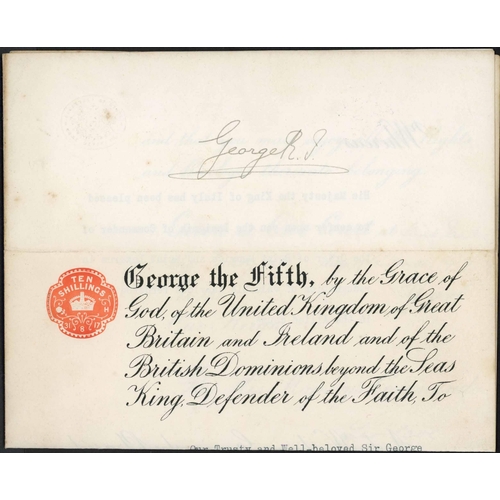 George R.I.
TEN
SHILLINGS
George the Fifth, by the Grace of
God, of the United Kingdom, of Great
Britain and Ireland and of the
British Dominions, beyond the Seas
King, Defender of the Faith, To
Our Trusty and Well-beloved Sir George